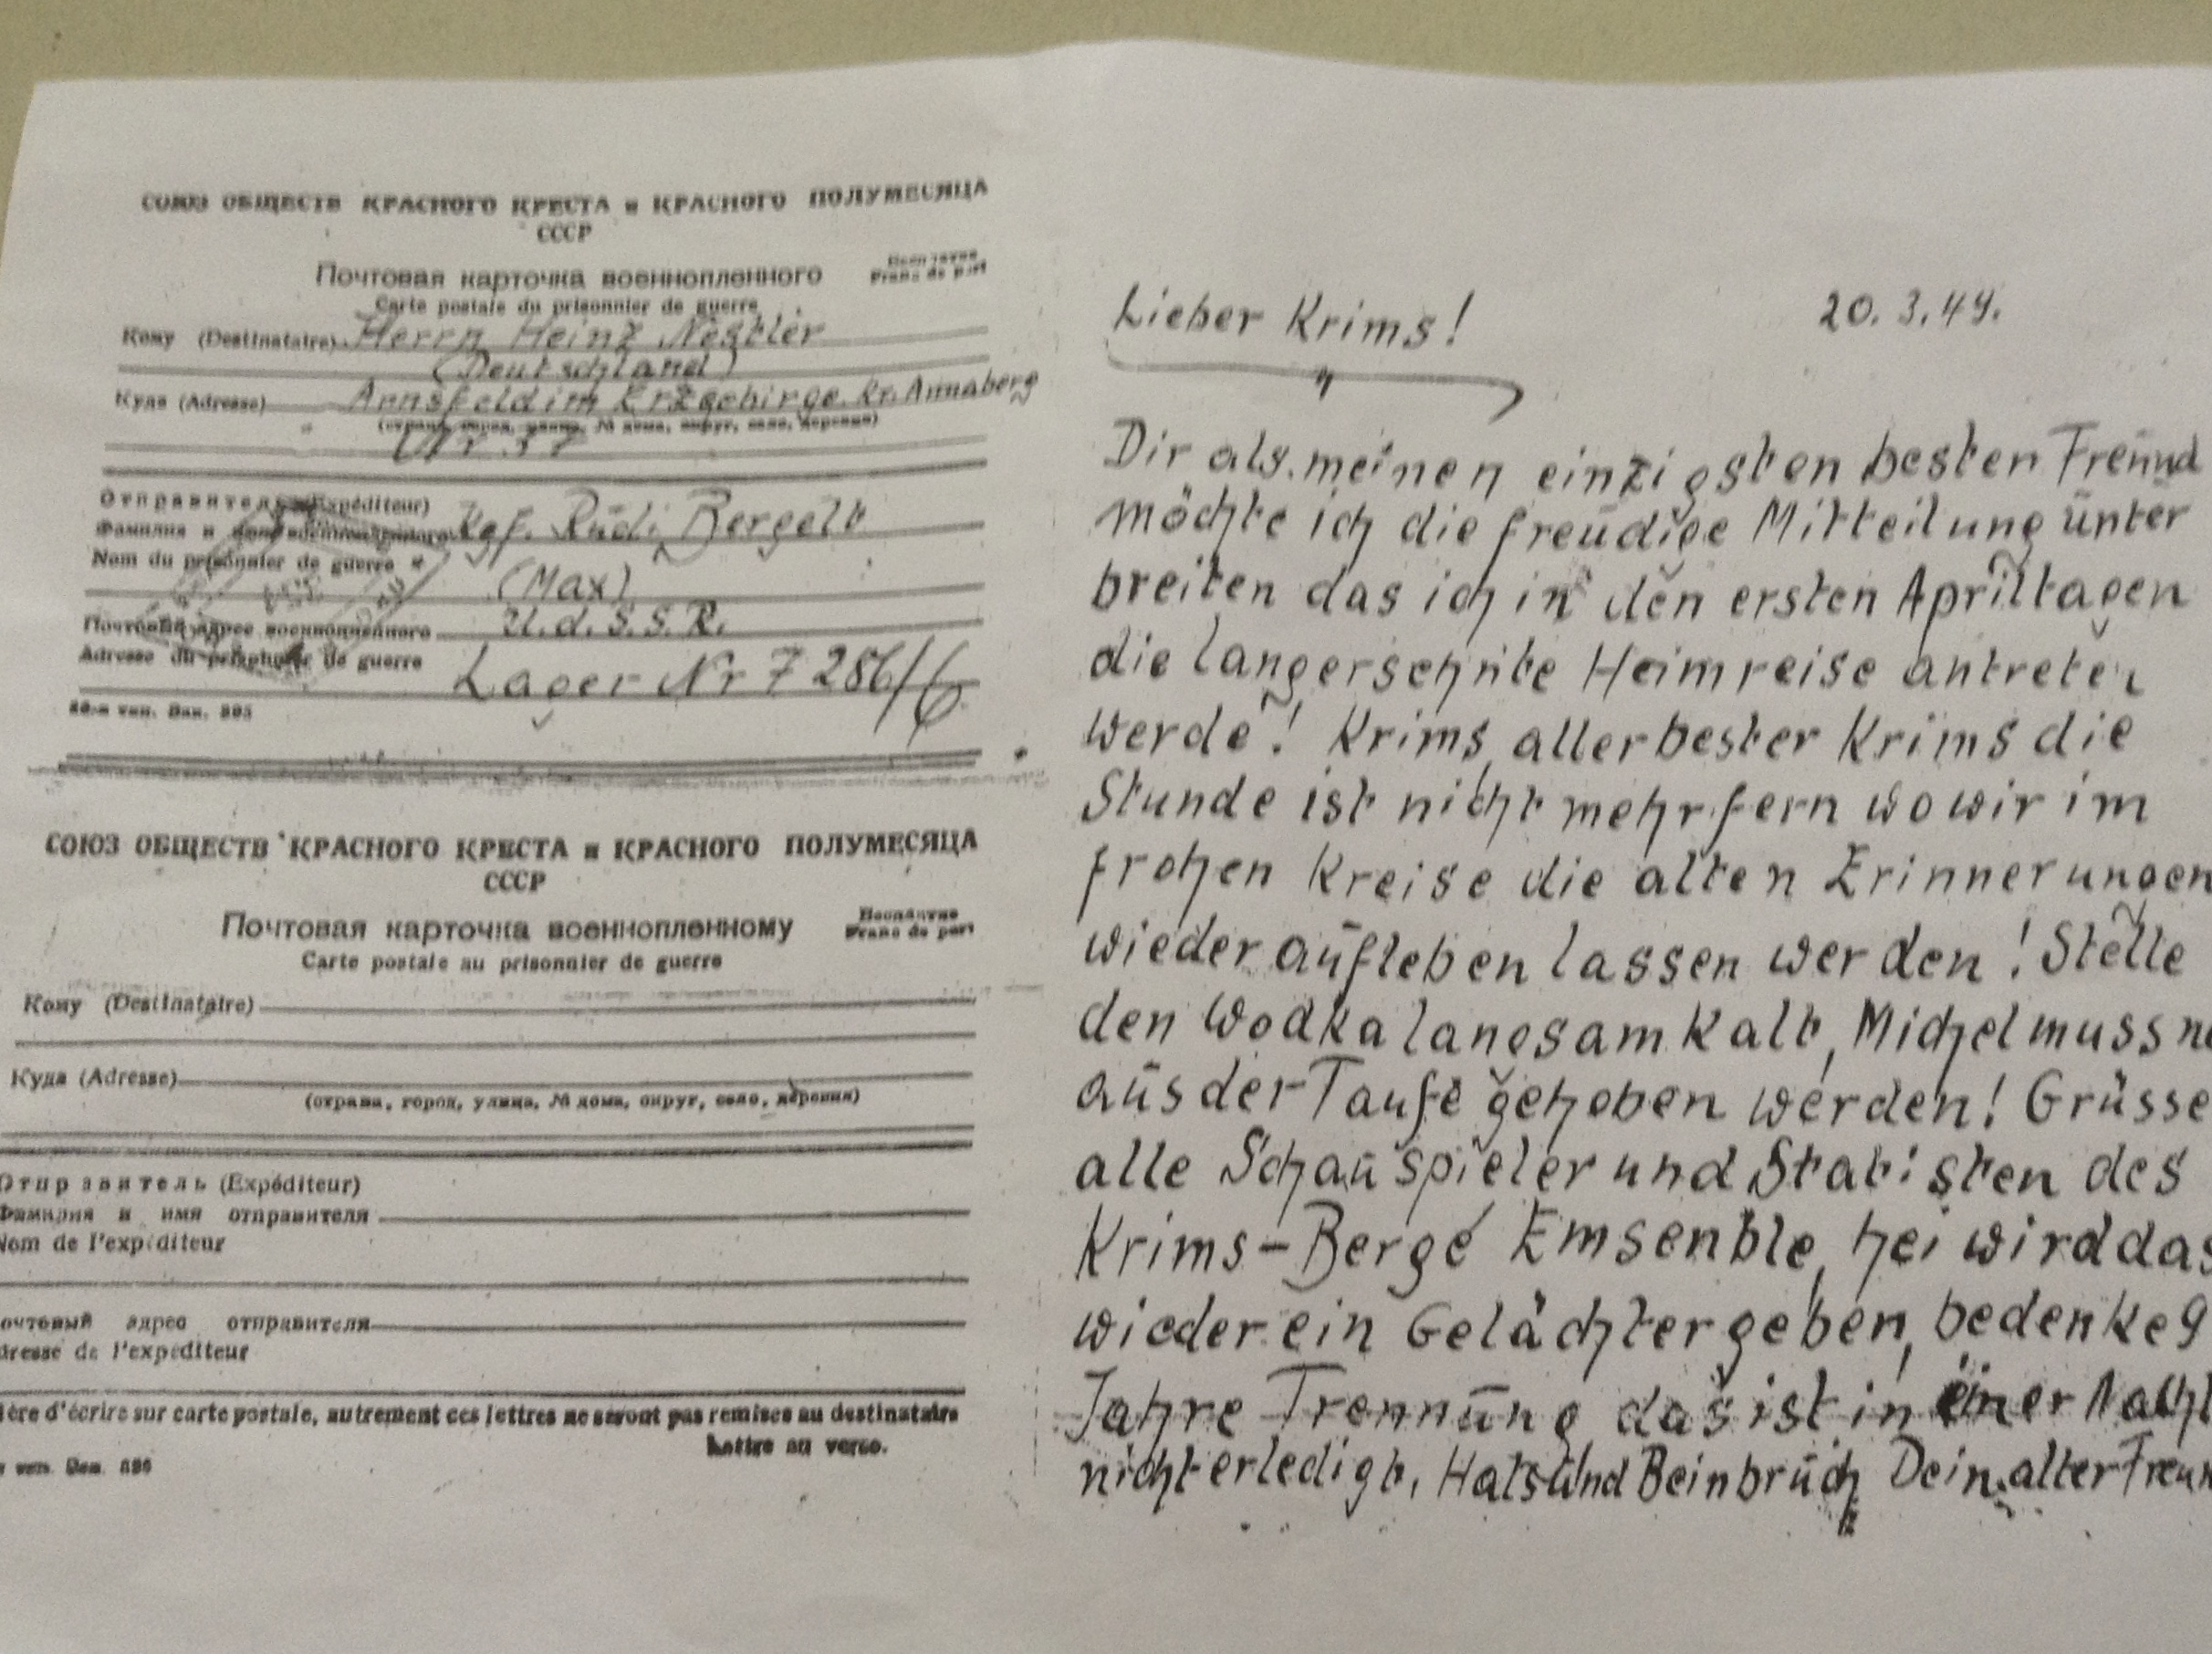 СОЮЗ ОБЩЕСТВ КРАСНОГО КРЕСТА и КРАСНОГО ПОЛУМЕСЯЦА
СССР
Почтовая карточка военнопленного
Carte postale du prisonnier de guerre
Franc de port
Кому (Destinataire) Herrn Heinz Nestler
(Deutschland)
Куда (Adresse) Arnsfeld im Erzgebirge Kr. Annaberg
(страна, город, улица, № дома, округ, село, деревня)
Nr 37
Отправитель (Expéditeur)
Фамилия и имя военнопленного Kgf. Rudi Bergelt
Nom du prisonnier de guerre
(Max)
Почтовый адрес военнопленного U.d.S.S.R.
Adresse du prisonnier de guerre
Lager Nr 7286/6
СОЮЗ ОБЩЕСТВ КРАСНОГО КРЕСТА и КРАСНОГО ПОЛУМЕСЯЦА
СССР
Почтовая карточка военнопленному
Бесплатно
Franc de port
Carte postale au prisonnier de guerre
Кому (Destinataire)
Куда (Adresse)
(страна, город, улица, № дома, округ, село, деревня)
Отправитель (Expéditeur)
Фамилия и имя отправителя
Nom de l'expéditeur
очтовый адрес отправителя
dresse de l'expéditeur
ière d'écrire sur carte postale, autrement ces lettres ne seront pas remises au destinataire
Lettre au verso.
20.3.49.
Lieber Krims!
Dir als meinen einzigsten besten Freund
möchte ich die freudige Mitteilung unter
breiten das ich in den ersten Apriltagen
die langersehnte Heimreise antreten
werde! Krims, allerbester Krims die
Stunde ist nicht mehr fern wo wir im
frohen Kreise die alten Erinnerungen
wieder aufleben lassen werden! Stelle
den Wodka langsam kalt, Michel muss no
aus der Taufe gehoben werden! Grüsse
alle Schauspieler und Statisten des
Krims-Berge Emsenble, hei wird das
wieder ein Gelächter geben, bedenke 9
Jahre Trennung das ist in einer Nacht
nicht erledigt, Hals und Beinbruch Dein alter Freun